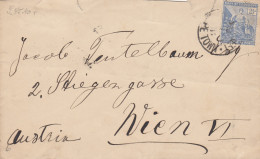 Jacob Teitelbaum
2, Stiegengasse
Wien VI
Austria